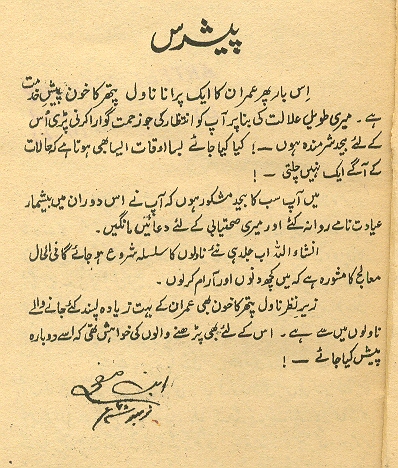 پیشرس
اِس بار پھر عمران کا ایک پرانا ناول پتھر کا خون پیشِ خدمت
ہے۔ میری طویل علالت کی بنا پر آپ کو انتظار کی جو زحمت گوارا کرنی پڑی اُس
کے لئے بیحد شرمندہ ہوں —! کیا کیا جائے بسا اوقات ایسا بھی ہوتا ہے کہ حالات
کے آگے ایک نہیں چلتی —!
میں آپ سب کا بیحد مشکور ہوں کہ آپ نے اس دوران میں بیشمار
عیادت نامے روانہ کئے اور میری صحتیابی کے لئے دعائیں مانگیں۔
انشاء اللہ اب جلد ہی نئے ناولوں کا سلسلہ شروع ہو جائے گا فی الحال
معالج کا مشورہ ہے کہ میں کچھ دنوں اور آرام کر لوں۔
زیرِ نظر ناول پتھر کا خون بھی عمران کے بہت زیادہ پسند کئے جانے والے
ناولوں میں سے ہے۔ اس کے لئے بھی پڑھنے والوں کی خواہش تھی کہ اسے دوبارہ
پیش کیا جائے —!
ابن صفی